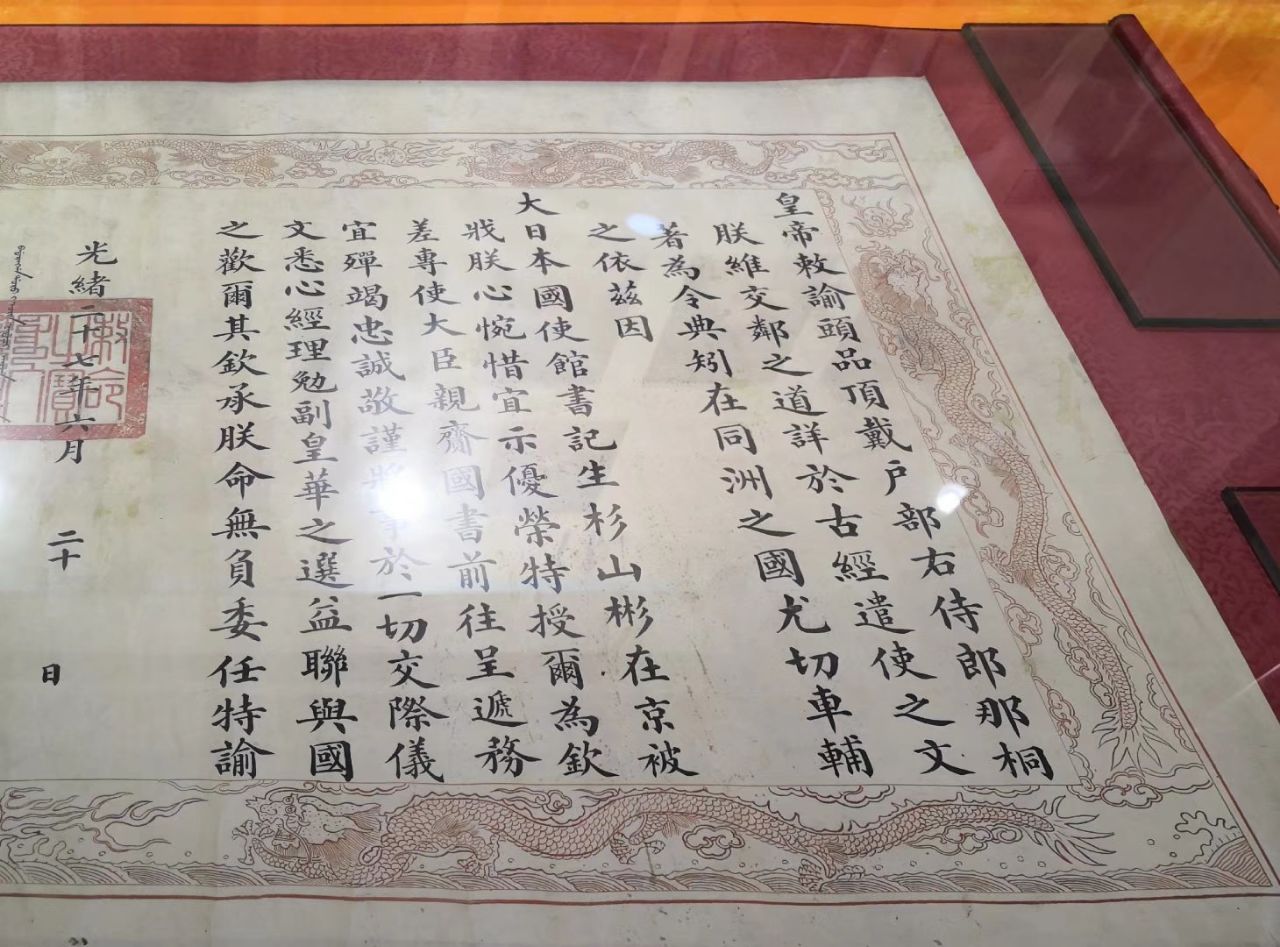 皇帝敕諭頭品頂戴戶部右侍郎那桐
朕維交鄰之道詳於古經遣使之文
著為令典矧在同洲之國尤切車輔
之依茲因
大日本國使館書記生杉山彬在京被
戕朕心惋惜宜示優榮特授爾為欽
差專使大臣親齎國書前往呈遞務
宜殫竭忠誠敬謹將事於一切交際儀
文悉心經理勉副皇華之選益聯與國
之歡爾其欽承朕命無負委任特諭
光緒二十七年六月二十日
敕命之寶